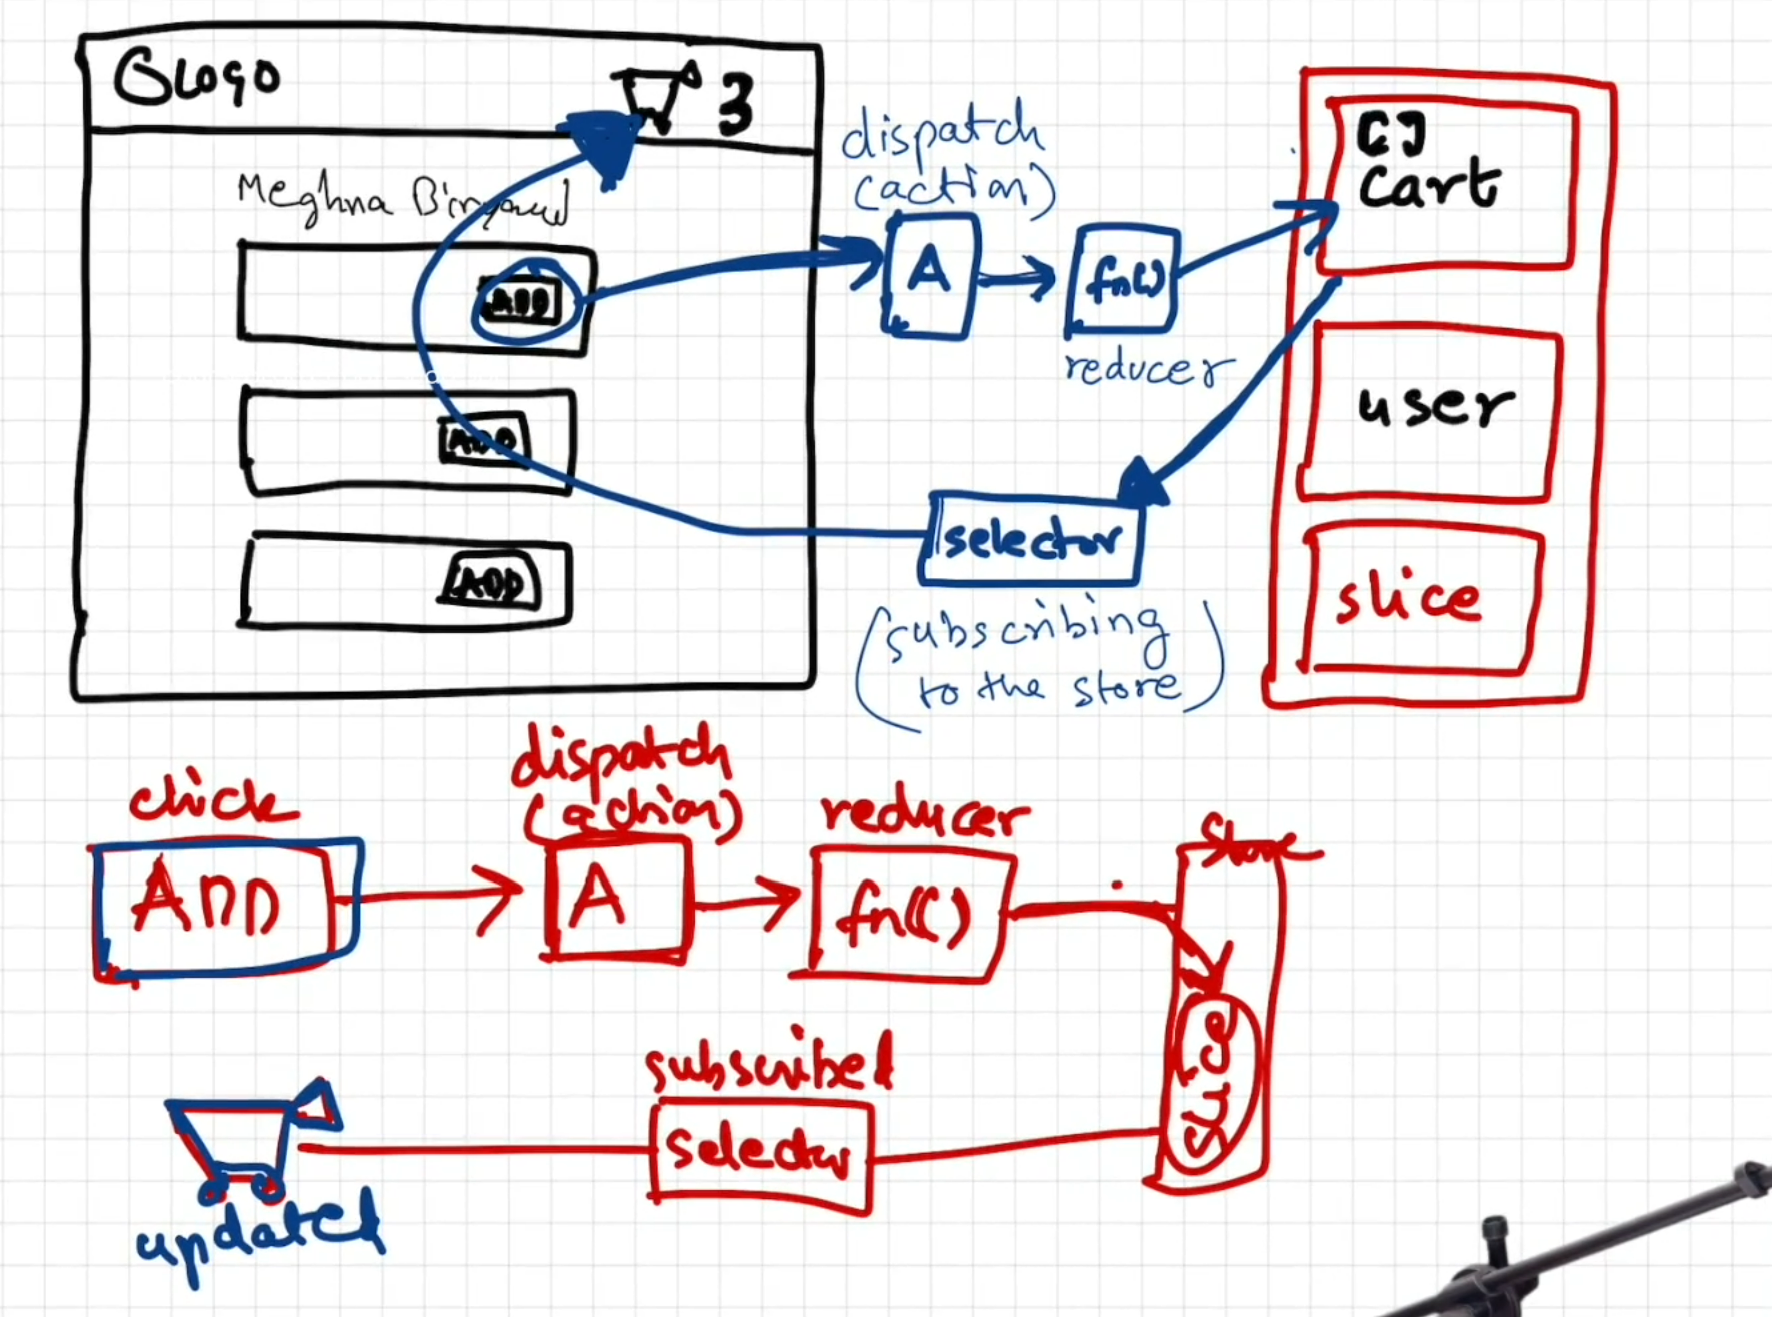 LOGO
3
Meghna Biryani
ADD
ADD
ADD
dispatch
(action)
A
fn()
reducer
[]
Cart
user
slice
selector
(subscribing
to the store)
click
ADD
dispatch
(action)
A
reducer
fn()
Store
slice
subscribed
selector
updated